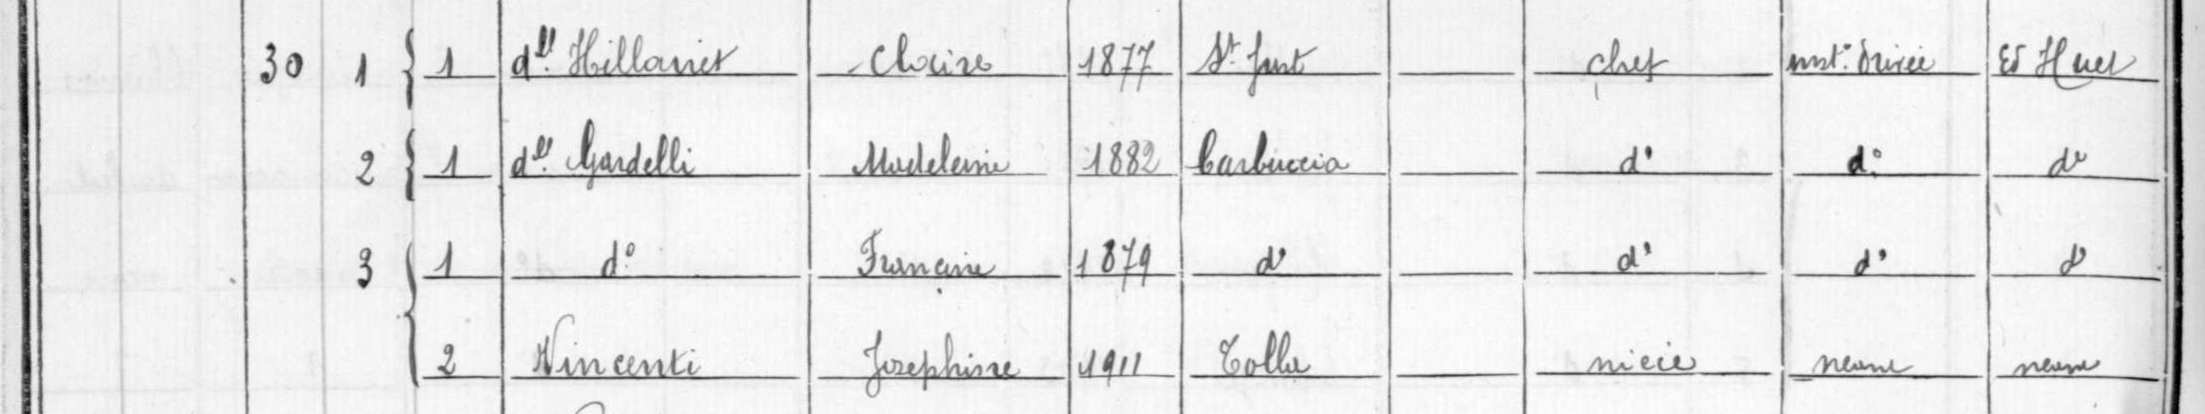 30 1 1 dlle Hillairet Claire 1877 St Just chef inst. privée Ed Huet
2 1 dlle Gardelli Madeleine 1882 Carbuccia do do do
3 1 do Francine 1879 do do do do
2 Vincenti Josephine 1911 Tolla nièce neant neant